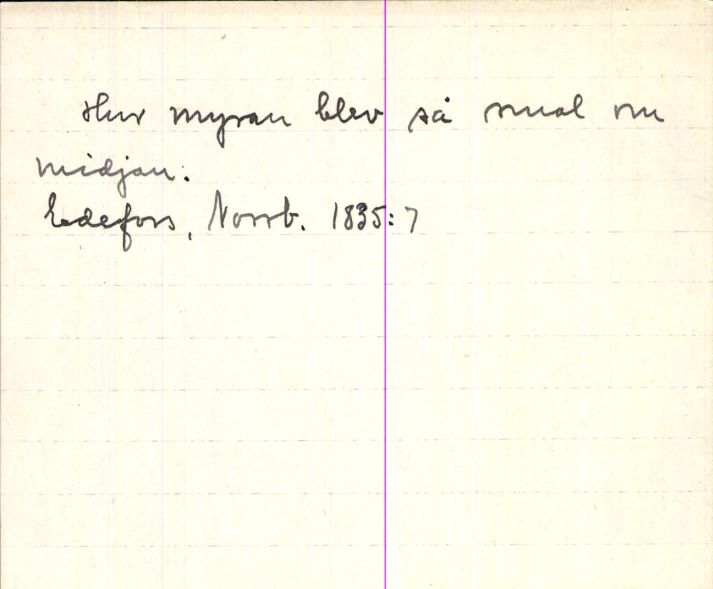 Hur myran blev så smal om
midjan.
Edefors, Norrb. 1835:7